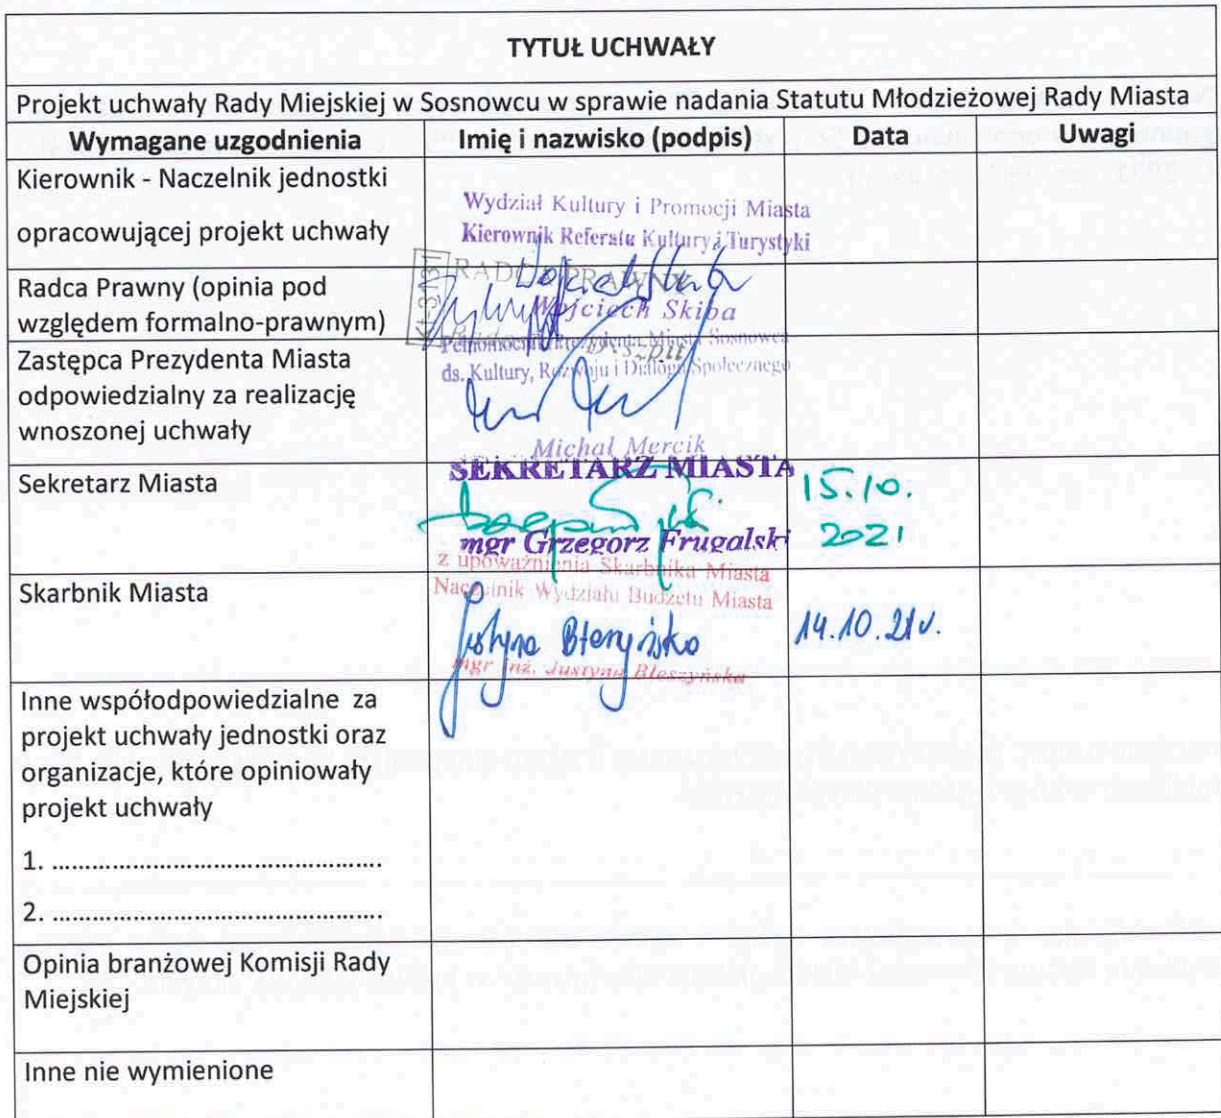 TYTUŁ UCHWAŁY
Projekt uchwały Rady Miejskiej w Sosnowcu w sprawie nadania Statutu Młodzieżowej Rady Miasta
Wymagane uzgodnienia Imię i nazwisko (podpis) Data Uwagi
Kierownik - Naczelnik jednostki
opracowującej projekt uchwały
Wydział Kultury i Promocji Miasta
Kierownik Referatu Kultury i Turystyki
Wojciech Skiba
Radca Prawny (opinia pod
względem formalno-prawnym)
RADCA PRAWNY
Zastępca Prezydenta Miasta
odpowiedzialny za realizację
wnoszonej uchwały
Pełnomocnik Prezydenta Miasta Sosnowca
ds. Kultury, Rozwoju i Dialogu Społecznego
Michał Mercik
Sekretarz Miasta
SEKRETARZ MIASTA
mgr Grzegorz Frugalski
15.10.
2021
Skarbnik Miasta
z upoważnienia Skarbnika Miasta
Naczelnik Wydziału Budżetu Miasta
Justyna Błeszyńska
mgr inż. Justyna Błeszyńska
14.10.21r.
Inne współodpowiedzialne za
projekt uchwały jednostki oraz
organizacje, które opiniowały
projekt uchwały
1. ..................................................
2. ..................................................
Opinia branżowej Komisji Rady
Miejskiej
Inne nie wymienione